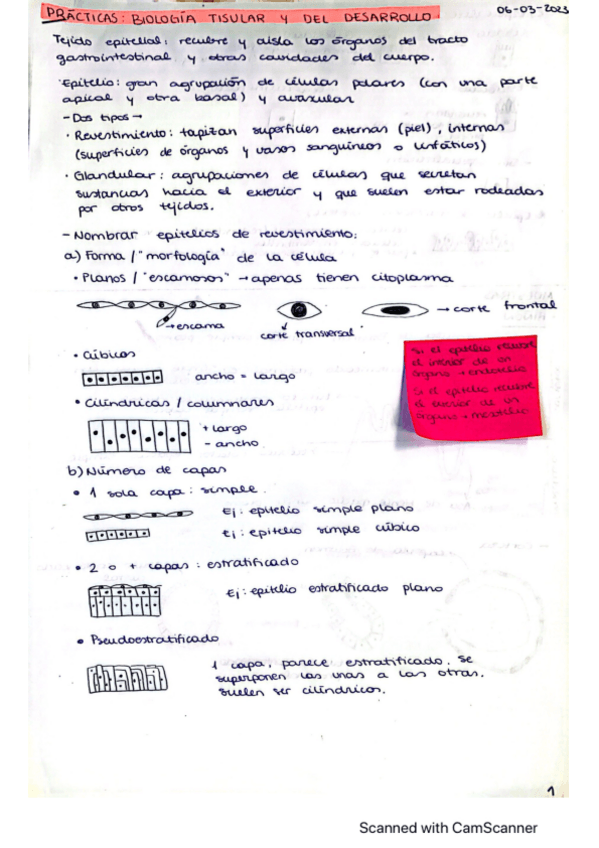 PRÁCTICAS: BIOLOGÍA TISULAR Y DEL DESARROLLO
06-03-2023
Tejido epitelial: recubre y aisla los órganos del tracto
gastrointestinal y otras cavidades del cuerpo.
· Epitelio: gran agrupación de células polares (con una parte
apical y otra basal) y avascular
- Dos tipos →
· Revestimiento: tapizan superficies externas (piel), internas
(superficies de órganos y vasos sanguíneos o linfáticos)
· Glandular: agrupaciones de células que secretan
sustancias hacia el exterior y que suelen estar rodeadas
por otros tejidos.
- Nombrar epitelios de revestimiento:
a) Forma / "morfología" de la célula
· Planos / "escamosos" → apenas tienen citoplasma
→ escama
corte transversal
→ corte frontal
· Cúbicos
ancho = largo
· Cilíndricas / columnares
+ largo
- ancho
Si el epitelio recubre
el interior de un
órgano → endotelio
Si el epitelio recubre
el exterior de un
órgano → mesotelio
b) Número de capas
· 1 sola capa: simple
Ej: epitelio simple plano
Ej: epitelio simple cúbico
· 2 o + capas: estratificado
Ej: epitelio estratificado plano
· Pseudoestratificado
1 capa, parece estratificado. Se
superponen las unas a las otras.
Suelen ser cilíndricos.
1
Scanned with CamScanner